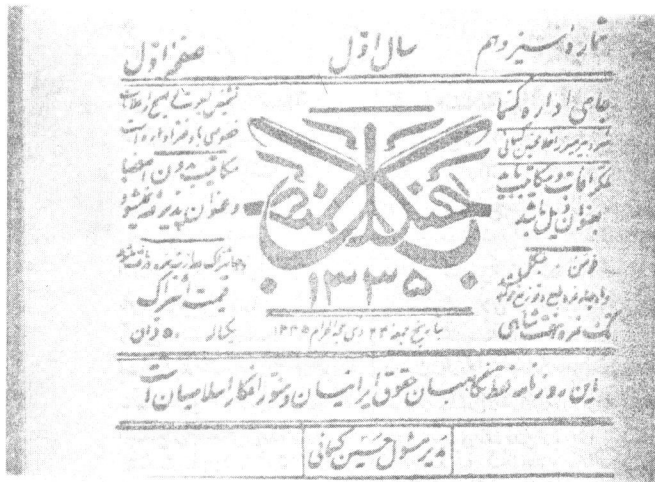 شماره سیزدهم
سال اول
صفحه اول
جای اداره کسما
تلگرافات و مکاتیب باید
بعنوان ذیل باشد
فومن جنگل
تک نمره هفت شاهی
جنگل
۱۳۳۵
بتاریخ جمعه ۲۳ ذی
الحرام ۱۳۳۵
خصوصی با دفتر اداره است
مکاتیب بدون امضا
و عنوان پذیرفته نمیشود
قیمت اشتراک
یکساله ۵۰ قران
این روزنامه فقط نگاهبان حقوق ایرانیان و منور افکار اسلامیان است
مدیر مسئول حسین کسمائی